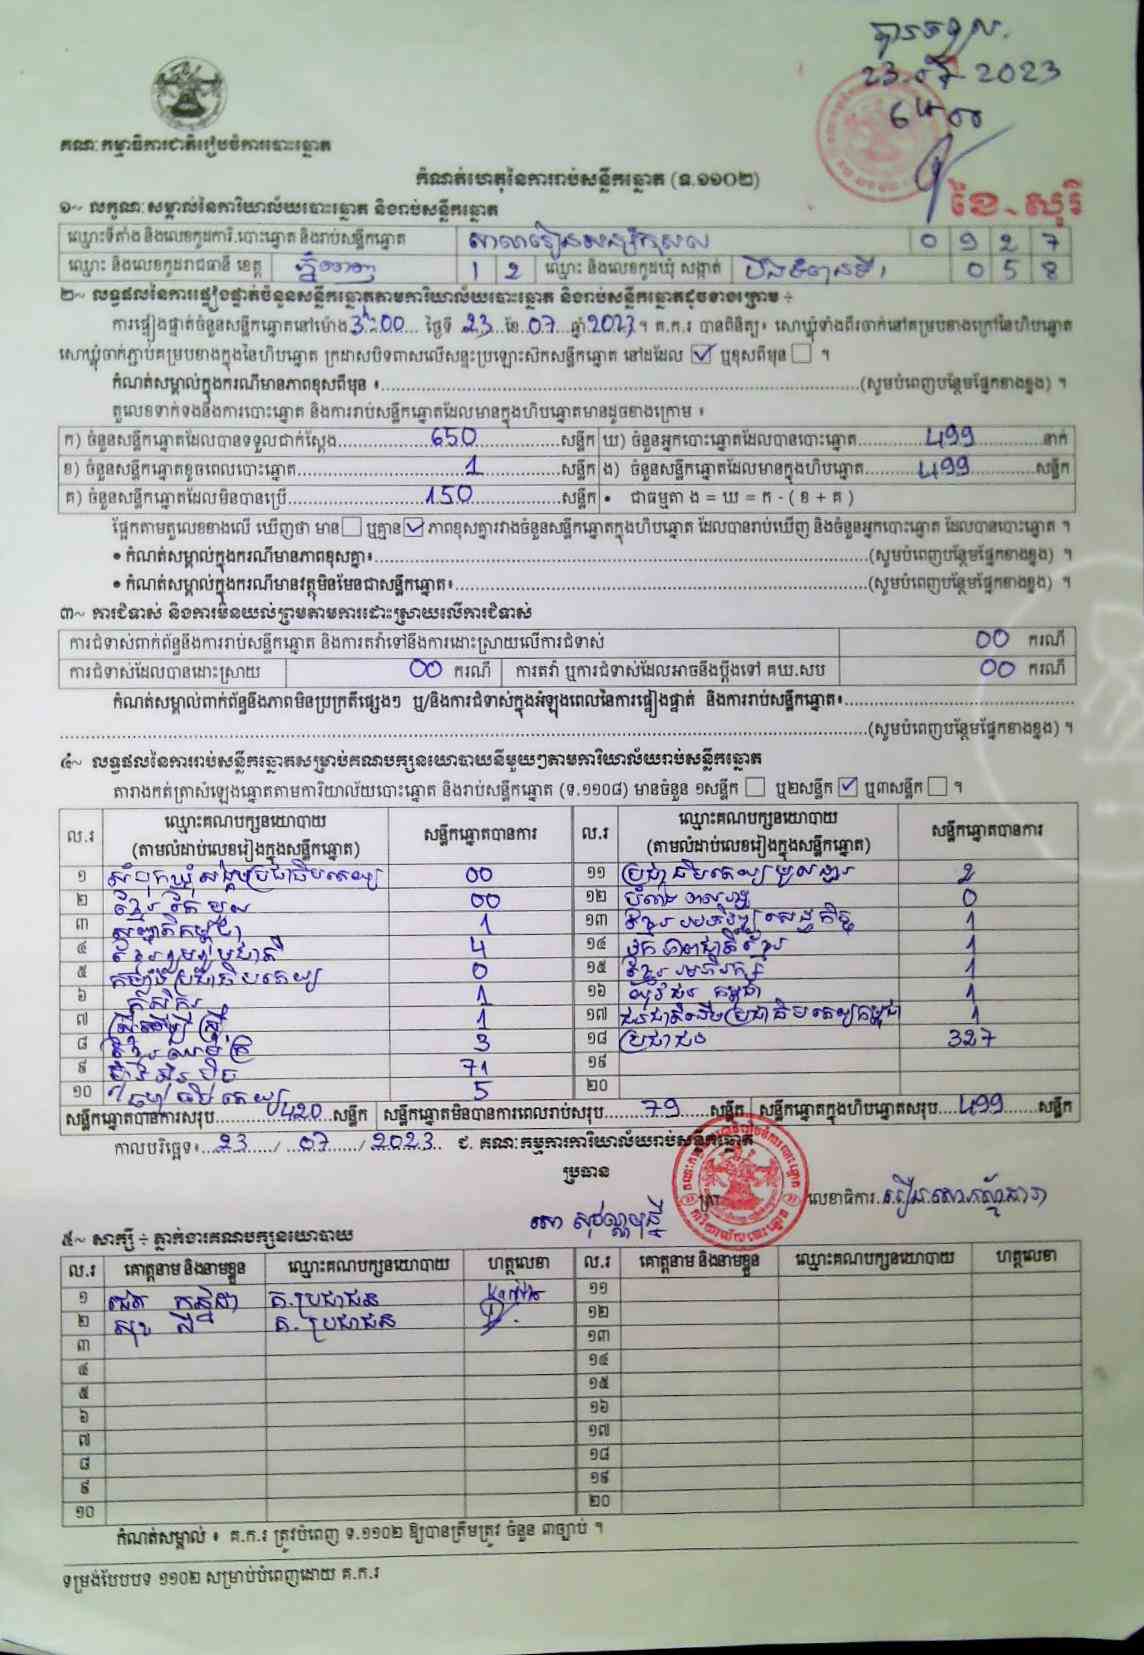 បានទទួល.
23.07 2023
គណៈកម្មាធិការជាតិរៀបចំការបោះឆ្នោត
ខៃ.សូរិ
កំណត់ហេតុនៃការរាប់សន្លឹកឆ្នោត (ទ.១១០២)
១~ លក្ខណៈសម្គាល់នៃការិយាល័យបោះឆ្នោត និងរាប់សន្លឹកឆ្នោត
ឈ្មោះទីតាំង និងលេខកូដការិ.បោះឆ្នោត និងរាប់សន្លឹកឆ្នោត សាលារៀន 0 9 2 7
ឈ្មោះ និងលេខកូដរាជធានី ខេត្ត ភ្នំពេញ 1 2 ឈ្មោះ និងលេខកូដឃុំ សង្កាត់ បឹងទំពុនទី១ 0 5 8
២~ លទ្ធផលនៃការផ្ទៀងផ្ទាត់ចំនួនសន្លឹកឆ្នោតតាមការិយាល័យបោះឆ្នោត និងរាប់សន្លឹកឆ្នោតដូចខាងក្រោម ÷
ការផ្ទៀងផ្ទាត់ចំនួនសន្លឹកឆ្នោតនៅម៉ោង 3:00 ថ្ងៃទី 23 ខែ 07 ឆ្នាំ 2023 ។ គ.ក.រ បានពិនិត្យ៖ សោឃ្លុំទាំងពីរចាក់នៅគម្របខាងក្រៅនៃហិបឆ្នោត
សោឃ្លុំចាក់ភ្ជាប់គម្របខាងក្នុងនៃហិបឆ្នោត ក្រដាសបិទពាសលើសន្ទះប្រឡោះសៀកសន្លឹកឆ្នោត នៅដដែល ✓ ឬខុសពីមុន ។
កំណត់សម្គាល់ក្នុងករណីមានភាពខុសពីមុន ៖ (សូមបំពេញបន្ថែមផ្នែកខាងខ្នង) ។
តួលេខទាក់ទងនឹងការបោះឆ្នោត និងការរាប់សន្លឹកឆ្នោតដែលមានក្នុងហិបឆ្នោតមានដូចខាងក្រោម ៖
ក) ចំនួនសន្លឹកឆ្នោតដែលបានទទួលជាក់ស្តែង 650 សន្លឹក ឃ) ចំនួនអ្នកបោះឆ្នោតដែលបានបោះឆ្នោត 499 នាក់
ខ) ចំនួនសន្លឹកឆ្នោតខូចពេលបោះឆ្នោត 1 សន្លឹក ង) ចំនួនសន្លឹកឆ្នោតដែលមានក្នុងហិបឆ្នោត 499 សន្លឹក
គ) ចំនួនសន្លឹកឆ្នោតដែលមិនបានប្រើ 150 សន្លឹក • ជាធម្មតា ង = ឃ = ក - ( ខ + គ )
ផ្អែកតាមតួលេខខាងលើ ឃើញថា មាន ឬគ្មាន ✓ ភាពខុសគ្នារវាងចំនួនសន្លឹកឆ្នោតក្នុងហិបឆ្នោត ដែលបានរាប់ឃើញ និងចំនួនអ្នកបោះឆ្នោត ដែលបានបោះឆ្នោត ។
• កំណត់សម្គាល់ក្នុងករណីមានភាពខុសគ្នា៖ (សូមបំពេញបន្ថែមផ្នែកខាងខ្នង) ។
• កំណត់សម្គាល់ក្នុងករណីមានវត្ថុមិនមែនជាសន្លឹកឆ្នោត៖ (សូមបំពេញបន្ថែមផ្នែកខាងខ្នង) ។
៣~ ការជំទាស់ និងការមិនយល់ព្រមតាមការដោះស្រាយលើការជំទាស់
ការជំទាស់ពាក់ព័ន្ធនឹងការរាប់សន្លឹកឆ្នោត និងការតវ៉ាទៅនឹងការដោះស្រាយលើការជំទាស់ 00 ករណី
ការជំទាស់ដែលបានដោះស្រាយ 00 ករណី ការតវ៉ា ឬការជំទាស់ដែលអាចនឹងប្តឹងទៅ គឃ.សប 00 ករណី
កំណត់សម្គាល់ពាក់ព័ន្ធនឹងភាពមិនប្រក្រតីផ្សេងៗ ឬ/និងការជំទាស់ក្នុងអំឡុងពេលនៃការផ្ទៀងផ្ទាត់ និងការរាប់សន្លឹកឆ្នោត៖
(សូមបំពេញបន្ថែមផ្នែកខាងខ្នង) ។
៤~ លទ្ធផលនៃការរាប់សន្លឹកឆ្នោតសម្រាប់គណបក្សនយោបាយនីមួយៗតាមការិយាល័យរាប់សន្លឹកឆ្នោត
តារាងកត់ត្រាសំឡេងឆ្នោតតាមការិយាល័យបោះឆ្នោត និងរាប់សន្លឹកឆ្នោត (ទ.១១០៨) មានចំនួន ១សន្លឹក ឬ២សន្លឹក ✓ ឬ៣សន្លឹក ។
ល.រ ឈ្មោះគណបក្សនយោបាយ (តាមលំដាប់លេខរៀងក្នុងសន្លឹកឆ្នោត) សន្លឹកឆ្នោតបានការ ល.រ ឈ្មោះគណបក្សនយោបាយ (តាមលំដាប់លេខរៀងក្នុងសន្លឹកឆ្នោត) សន្លឹកឆ្នោតបានការ
១ សំបុកឃ្មុំសង្គមប្រជាធិបតេយ្យ 00 ១១ ប្រជាធិបតេយ្យមូលដ្ឋាន 2
២ ខ្មែររួបរួម 00 ១២ 0
៣ សញ្ជាតិកម្ពុជា 1 ១៣ ខ្មែរ 1
៤ ខ្មែររួបរួមជាតិ 4 ១៤ ឯកភាពជាតិខ្មែរ 1
៥ កម្លាំងប្រជាធិបតេយ្យ 0 ១៥ ខ្មែរអភិរក្ស 1
៦ កសិករ 1 ១៦ យុវជនកម្ពុជា 1
៧ ស្ត្រីដើម្បីស្ត្រី 1 ១៧ ជនជាតិដើមប្រជាធិបតេយ្យកម្ពុជា 1
៨ 3 ១៨ ប្រជាជន 327
៩ ហ៊្វុនស៊ិនប៉ិច 71 ១៩
១០ ធម្មាធិបតេយ្យ 5 ២០
សន្លឹកឆ្នោតបានការសរុប 420 សន្លឹក សន្លឹកឆ្នោតមិនបានការពេលរាប់សរុប 79 សន្លឹក សន្លឹកឆ្នោតក្នុងហិបឆ្នោតសរុប 499 សន្លឹក
កាលបរិច្ឆេទ៖ 23 / 07 / 2023 ជ. គណៈកម្មការការិយាល័យរាប់សន្លឹកឆ្នោត
ប្រធាន
ត្រា លេខាធិការ
៥~ សាក្សី ÷ ភ្នាក់ងារគណបក្សនយោបាយ
ល.រ គោត្តនាម និងនាមខ្លួន ឈ្មោះគណបក្សនយោបាយ ហត្ថលេខា ល.រ គោត្តនាម និងនាមខ្លួន ឈ្មោះគណបក្សនយោបាយ ហត្ថលេខា
១ គ.ប្រជាជន ១១
២ សុខ គ.ប្រជាជន ១២
៣ ១៣
៤ ១៤
៥ ១៥
៦ ១៦
៧ ១៧
៨ ១៨
៩ ១៩
១០ ២០
កំណត់សម្គាល់ ៖ គ.ក.រ ត្រូវបំពេញ ទ.១១០២ ឱ្យបានត្រឹមត្រូវ ចំនួន ៣ច្បាប់ ។
ទម្រង់បែបបទ ១១០២ សម្រាប់បំពេញដោយ គ.ក.រ